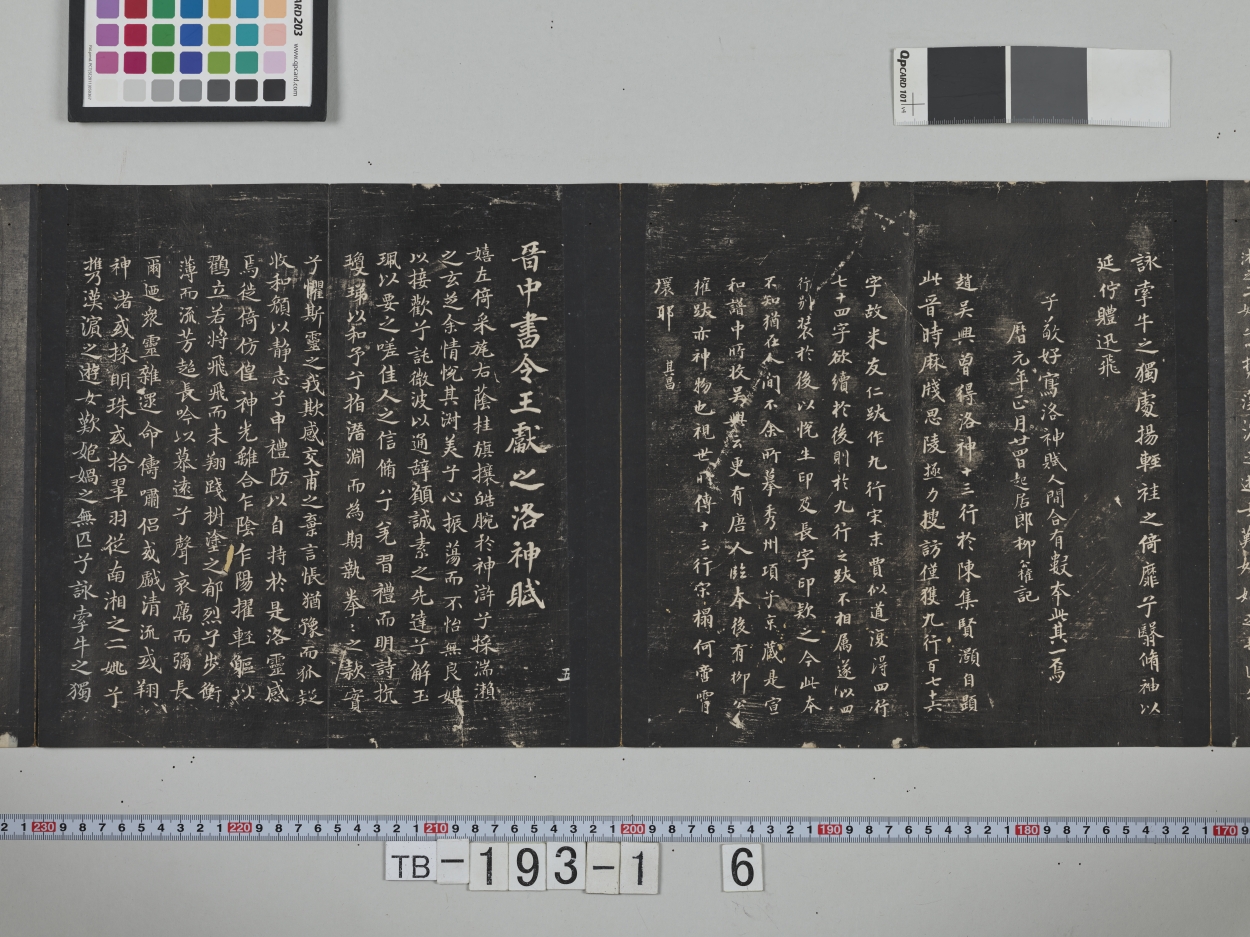 詠牽牛之獨處揚輕袿之倚靡子翳脩袖以
延佇軆迅飛
子敬好寫洛神賦人間合有數本此其一焉
曆元年正月廿四日起居郎柳公權記
趙吳興曾得洛神十三行於陳集賢灝自題
此晉時麻牋思陵極力搜訪僅獲九行百七十六
字故米友仁跋作九行宋末賈似道復得四行
七十四字欲續於後則於九行之跋不相属遂以四
行別装於後以悅生印及長字印款之今此本
不知猶在人间不余所摹秀州項子京藏是宣
和譜中所收吳興云更有唐人臨本後有柳公
權跋亦神物也視世所傳十三行宋搨何啻霄
壤耶
其昌
晉中書令王獻之洛神賦
五
嬉左倚采旄右蔭桂旗攘皓腕於神滸子採湍瀨
之玄芝余情悅其淑美子心振蕩而不怡無良媒
以接歡子託微波以通辭願誠素之先達子解玉
珮以要之嗟佳人之信脩子羌習禮而明詩抗
瓊珶以和予子指潛淵而為期執拳〻之款實
子懼斯靈之我欺感交甫之棄言悵猶豫而狐疑
收和顏以静志子申禮防以自持於是洛靈感
焉徙倚仿偟神光離合乍陰乍陽擢輕軀以
鶴立若將飛飛而未翔踐椒塗之郁烈子步衡
薄而流芳超長吟以慕遠子聲哀厲而彌長
爾迺衆靈雜遝命儔嘯侣或戲清流或翔
神渚或採明珠或拾翠羽從南湘之二姚子
攜漢濱之遊女歎妃媧之無匹子詠牽牛之獨
QPCARD 101 v4
CARD 203
www.qpcard.com
2 1 230 9 8 7 6 5 4 3 2 1 220 9 8 7 6 5 4 3 2 1 210 9 8 7 6 5 4 3 2 1 200 9 8 7 6 5 4 3 2 1 190 9 8 7 6 5 4 3 2 1 180 9 8 7 6 5 4 3 2 1 170 9
TB-193-1 6